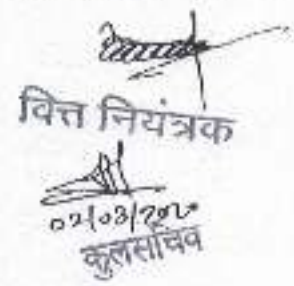 वित्त नियंत्रक
02/03/2020
कुलसचिव